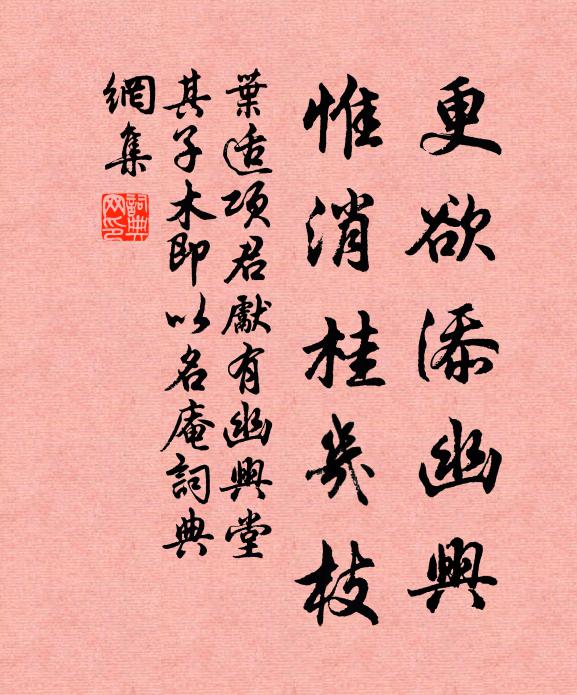 更欲添幽興
惟消桂幾枝
葉适項君獻有幽興堂
其子木即以名庵詞典
網集
詞典網印